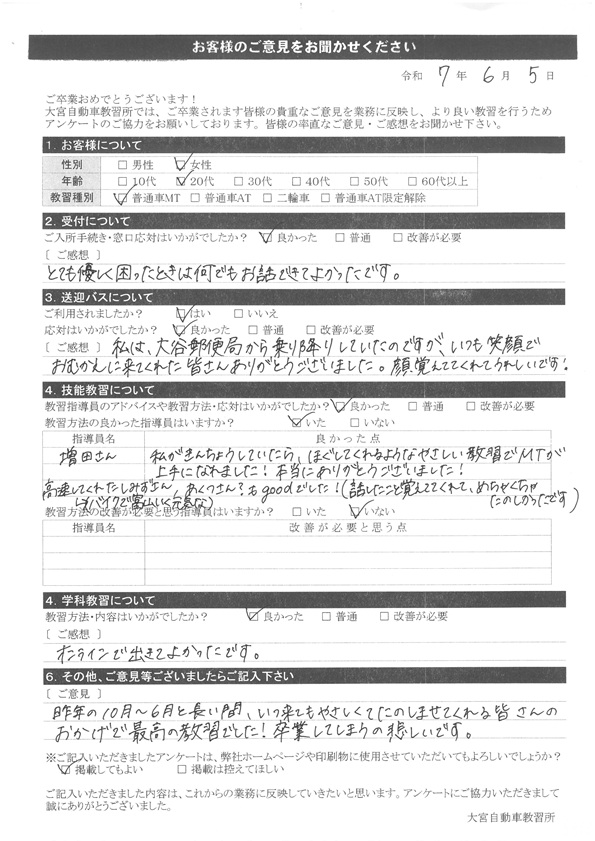 お客様のご意見をお聞かせください
令和 7年 6月 5日
ご卒業おめでとうございます！
大宮自動車教習所では、ご卒業されます皆様の貴重なご意見を業務に反映し、より良い教習を行うため
アンケートのご協力をお願いしております。皆様の率直なご意見・ご感想をお聞かせ下さい。
1. お客様について
性別 □男性 ☑女性
年齢 □10代 ☑20代 □30代 □40代 □50代 □60代以上
教習種別 ☑普通車MT □普通車AT □二輪車 □普通車AT限定解除
2. 受付について
ご入所手続き・窓口応対はいかがでしたか？ ☑良かった □普通 □改善が必要
[ ご感想 ]
とても優しく困ったときは何でもお話できてよかったです。
3. 送迎バスについて
ご利用されましたか？ ☑はい □いいえ
応対はいかがでしたか？ ☑良かった □普通 □改善が必要
[ ご感想 ] 私は、大谷郵便局から乗り降りしていたのですが、いつも笑顔で
おむかえに来てくれた皆さんありがとうございました。顔覚えててくれてうれしいです！
4. 技能教習について
教習指導員のアドバイスや教習方法・応対はいかがでしたか？ ☑良かった □普通 □改善が必要
教習方法の良かった指導員はいますか？ ☑いた □いない
指導員名 良かった点
増田さん 私がきんちょうしていたら、ほぐしてくれるようなやさしい教習でMTが
上手になれました！本当にありがとうございました！
高速してくれたしみずさん、あくつさん？もgoodでした！(話したこと覚えてくれてて、めちゃくちゃ
たのしかったです)
教習方法の改善が必要と思う指導員はいますか？ □いた ☑いない
指導員名 改善が必要と思う点
4. 学科教習について
教習方法・内容はいかがでしたか？ ☑良かった □普通 □改善が必要
[ ご感想 ]
オンラインで出きてよかったです。
6. その他、ご意見等ございましたらご記入下さい
[ ご意見 ]
昨年の10月～6月と長い間、いつ来てもやさしくてたのしませてくれる皆さんの
おかげで最高の教習でした！卒業してしまうの悲しいです。
※ご記入いただきましたアンケートは、弊社ホームページや印刷物に使用させていただいてもよろしいでしょうか？
☑掲載してもよい □掲載は控えてほしい
ご記入いただきました内容は、これからの業務に反映していきたいと思います。アンケートにご協力いただきまして
誠にありがとうございました。
大宮自動車教習所